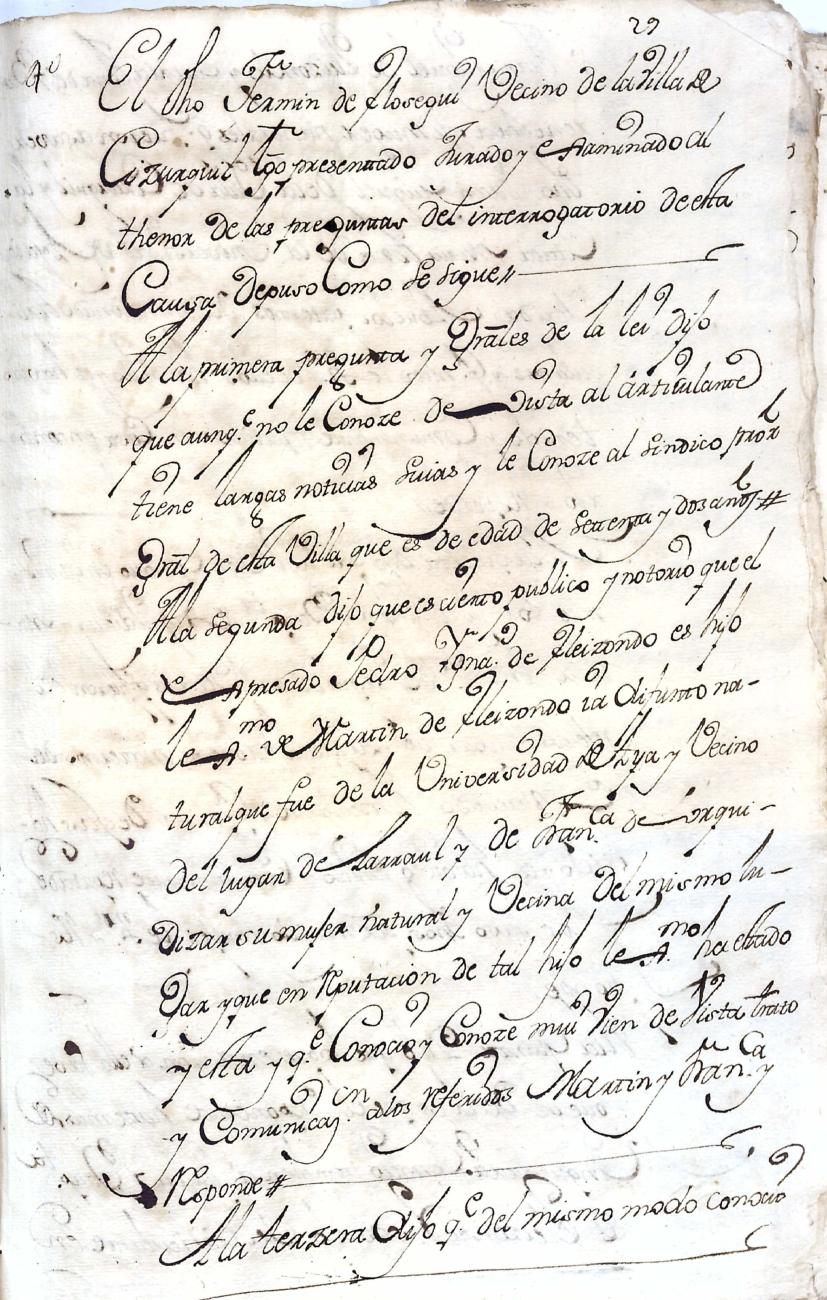 29
4º
El dho Fermin de Floseguí Vecino de la Villa de
Cizurquil tgo presentado Jurado y examinado al
thenor de las preguntas del interrogatorio de esta
Causa depuso Como se sigue//
A la primera pregunta y Grales de la lei dijo
que aunq.e no le Conoze de Vista al articulante
tiene largas noticias suias y le Conoze al sindico pror
Gral de esta Villa que es de edad de settenta y dos años//
A la segunda dijo que es cierto publico y notorio que el
expresado Pedro Igna.o de Fleizondo es hijo
lex.mo de Martin de Fleizondo ia difunto na-
tural que fue de la Universidad de Aya y Vecino
del lugar de Larraul y de Fran.ca de Corqui-
dizar su mujer natural y Vecina del mismo lu-
gar y que en Reputacion de tal hijo lex.mo ha estado
y esta y q.e Conocio y Conoze mui bien de Vista trato
y Comunicaz.on a los referidos Martin y Fran.ca y
Responde//
A la terzera dijo q.e del mismo modo conocio